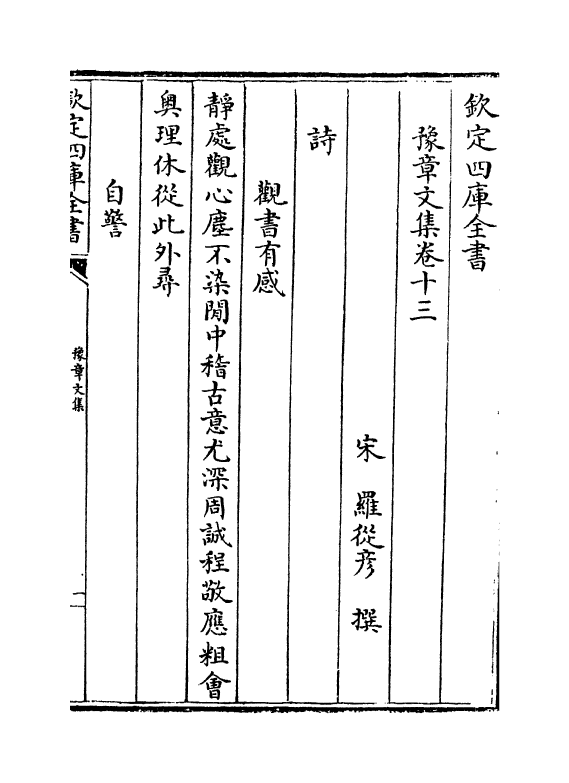 欽定四庫全書
豫章文集卷十三
宋 羅從彦 撰
詩
觀書有感
靜處觀心塵不染閒中稽古意尤深周誠程敬應粗會
奥理休從此外尋
自警
欽定四庫全書
豫章文集